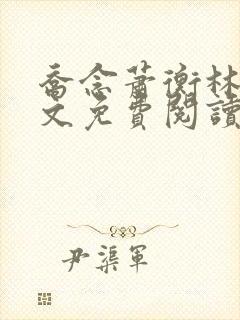 喬念蕭衡林
文免費閱讀
尹渠軍